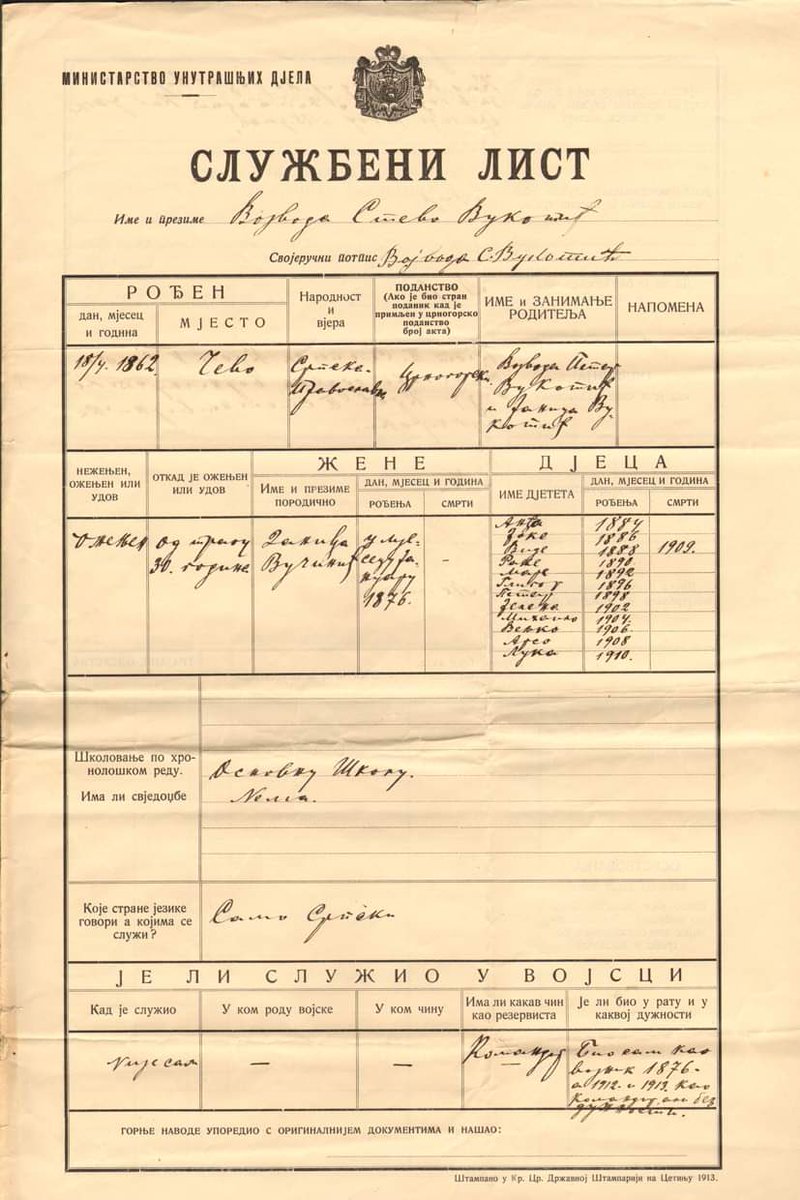 МИНИСТАРСТВО УНУТРАШЊИХ ДЈЕЛА
СЛУЖБЕНИ ЛИСТ
Име и презиме Војвода Стево Вукотић
Својеручни потпис Војвода С. Вукотић
РОЂЕН
дан, мјесец и година
МЈЕСТО
Народност и вјера
ПОДАНСТВО
(Ако је био стран
поданик кад је
примљен у црногорско
поданство
број акта)
ИМЕ и ЗАНИМАЊЕ
РОДИТЕЉА
НАПОМЕНА
1862
Чево
Српска
Православна
Црногорски
Војвода Петар
Вукотић
и Јаница Ву-
котић
НЕЖЕЊЕН,
ОЖЕЊЕН ИЛИ
УДОВ
ОТКАД ЈЕ ОЖЕЊЕН
ИЛИ УДОВ
ЖЕНЕ
ИМЕ И ПРЕЗИМЕ
ПОРОДИЧНО
ДАН, МЈЕСЕЦ И ГОДИНА
РОЂЕЊА
СМРТИ
ДЈЕЦА
ИМЕ ДЈЕТЕТА
ДАН, МЈЕСЕЦ И ГОДИНА
РОЂЕЊА
СМРТИ
Ожењен
од
30. године
Вучинић
1876.
–
1884
1886
Виде 1888 1909.
1890
1892
1896
Петар 1898
Јелена 1902
Михаило 1904.
Вељко 1906.
Арсо 1908
Лука 1910.
Школовање по хро-
нолошком реду.
Има ли свједоџбе
Основну Школу.
Нема.
Које стране језике
говори а којима се
служи?
Само Српски
ЈЕ ЛИ СЛУЖИО У ВОЈСЦИ
Кад је служио
У ком роду војске
У ком чину
Има ли какав чин
као резервиста
Је ли био у рату и у
каквој дужности
Није сам
—
—
Командир
Био сам као
војник 1876-
а 1912. и 1913. као
командир али без
дужности.
ГОРЊЕ НАВОДЕ УПОРЕДИО С ОРИГИНАЛНИЈЕМ ДОКУМЕНТИМА И НАШАО:
Штампано у Кр. Цр. Државној Штампарији на Цетињу 1913.